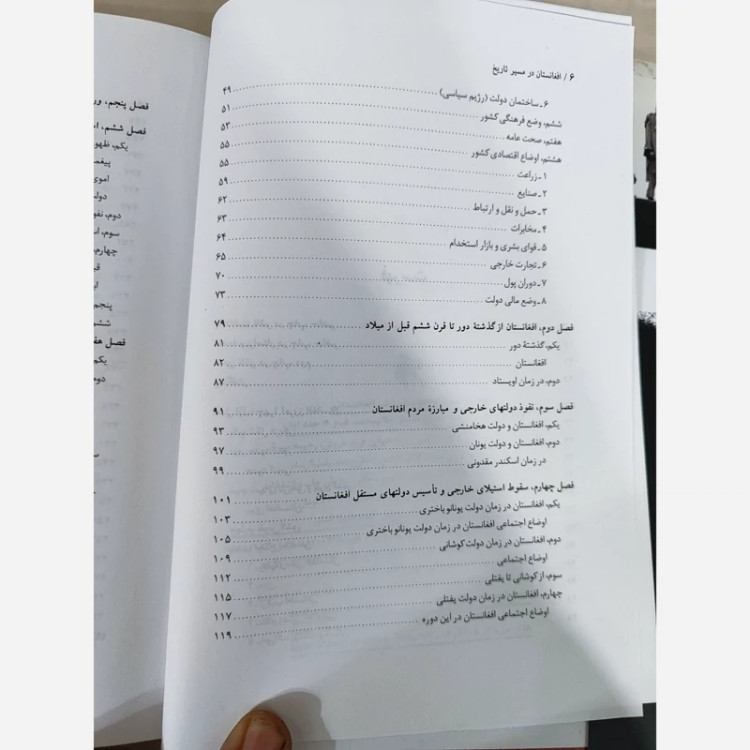 ۶ / افغانستان در مسیر تاریخ
۶ـ ساختمان دولت (رژیم سیاسی) ۴۹
ششم، وضع فرهنگی کشور ۵۱
هفتم، صحت عامه ۵۳
هشتم، اوضاع اقتصادی کشور ۵۵
۱ـ زراعت ۵۵
۲ـ صنایع ۵۹
۳ـ حمل و نقل و ارتباط ۶۲
۴ـ مخابرات ۶۳
۵ـ قوای بشری و بازار استخدام ۶۴
۶ـ تجارت خارجی ۶۵
۷ـ دوران پول ۷۰
۸ـ وضع مالی دولت ۷۳
فصل دوم، افغانستان از گذشتهٔ دور تا قرن ششم قبل از میلاد ۷۹
یکم، گذشتهٔ دور ۸۱
افغانستان ۸۲
دوم، در زمان اویستاد ۸۷
فصل سوم، نفوذ دولتهای خارجی و مبارزهٔ مردم افغانستان ۹۱
یکم، افغانستان و دولت هخامنشی ۹۳
دوم، افغانستان و دولت یونان ۹۷
در زمان اسکندر مقدونی ۹۹
فصل چهارم، سقوط استیلای خارجی و تأسیس دولتهای مستقل افغانستان ۱۰۱
یکم، افغانستان در زمان دولت یونانو باختری ۱۰۳
اوضاع اجتماعی افغانستان در زمان دولت یونانو باختری ۱۰۵
دوم، افغانستان در زمان دولت کوشانی ۱۰۹
اوضاع اجتماعی ۱۱۲
سوم، از کوشانی تا یفتلی ۱۱۵
چهارم، افغانستان در زمان دولت یفتلی ۱۱۷
اوضاع اجتماعی افغانستان در این دوره ۱۱۹
فصل پنجم، ور
فصل ششم، اس
یکم، ظهو
پیغم
اموی
دولت
دوم، نفو
سوم، اس
چهارم،
قی
ار
پنجم
ششم
فصل هف
یکم
دوم